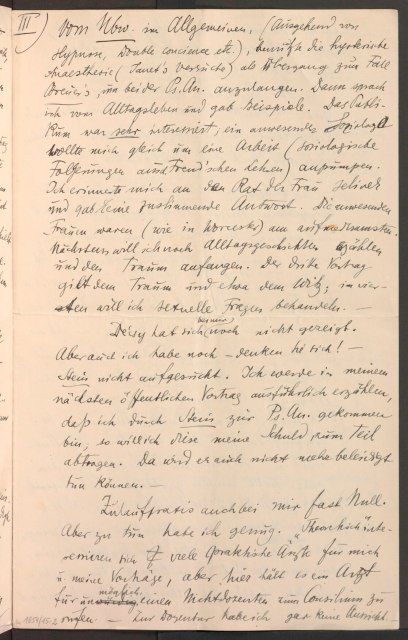 III)
Vom Ubw. im Allgemeinen, (ausgehend von
Hypnose, double concience etc), benützte die hysterische
Anaesthesie (Janet's Versuche) als Übergang zum Fall
Breuer's, um bei der Ps.An. anzulangen. Dann sprach
ich vom Alltagsleben und gab Beispiele. Das Publi-
kum war sehr interessiert, ein anwesender Soziologe
wollte mich gleich um eine Arbeit (Soziologische
Folgerungen aus d Freud'schen Lehren) anpumpen.
Ich erinnerte mich an den Rat der Frau
und gab keine zustimmende Antwort. Die anwesenden
Frauen waren (wie in Worcester) am aufmerksamsten.
Nächstens will ich noch Alltagsgeschichten erzählen
und den Traum anfangen. Der dritte Vortrag
gilt dem Traum und etwa dem Witz; im vier-
ten will ich sexuelle Fragen behandeln. —
Décsy hat sich bei mir noch nicht gezeigt.
Aber auch ich habe noch – denken Sie sich! –
Stein nicht aufgesucht. Ich werde in meinem
nächsten öffentlichen Vortrag ausführlich erzählen,
daß ich durch Stein zur Ps.An. gekommen
bin, so will ich diese meine Schuld zum Teil
abtragen. Da wird er auch nicht mehr beleidigt
tun können. —
Zulaufpraxis auch bei mir fast Null.
Aber zu tun habe ich genug. „Theoretisch" inte-
ressieren sich viele praktische Ärzte für mich
u. meine Vorträge, aber hier hält es ein Arzt
für unmöglich, einen Nichtdozenten zum Consilium zu
rufen. – Zur Dozentur habe ich gar keine Aussicht.
1054/15-2